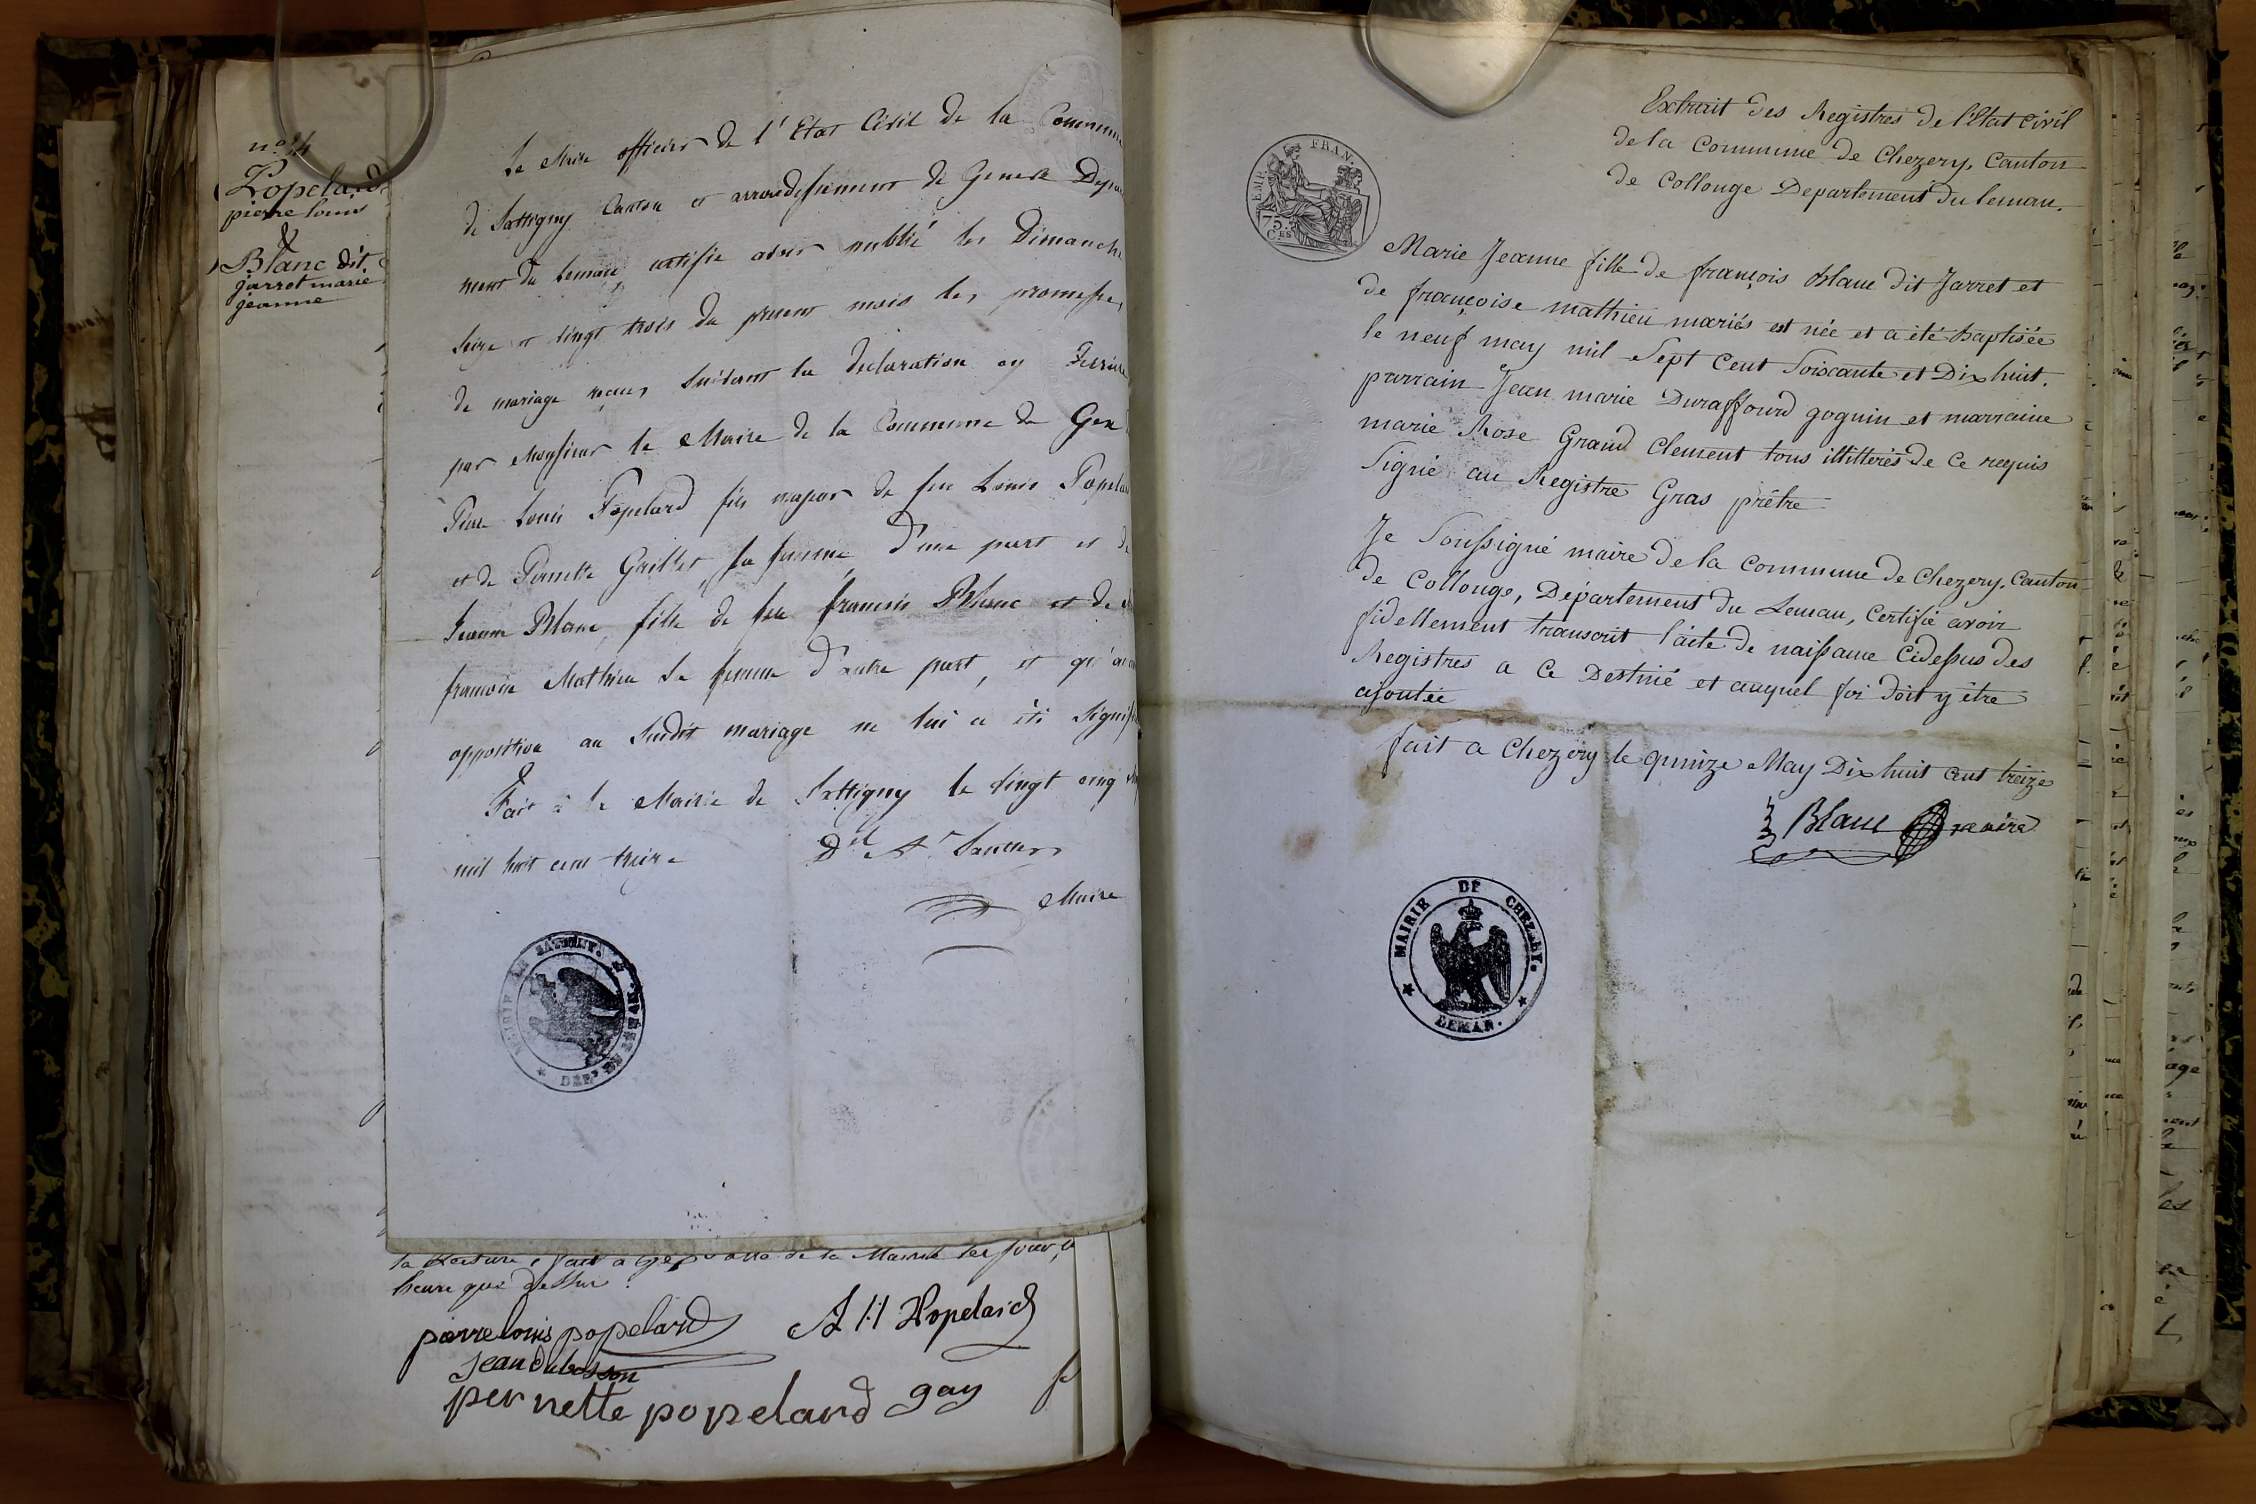 n.º 14
Popelard
pierre louis
&
Blanc dit
jarret marie
jeanne
Le Maire officier de l'Etat Civil de la Commune
de Sattigny Canton et arrondissement de Geneve Depar
ment du Leman, certifie avoir publié les Dimanche
seize et vingt trois du present mois les promesses
de mariage reçues suivant la declaration cy
par Monsieur le Maire de la Commune de Gex
Pierre Louis Popelard fils majeur de feu Louis Popelard
et de Pernette Grillet, sa femme, d'une part et de
Jeanne Blanc, fille de feu françois Blanc et de
françoise Mathieu sa femme d'autre part, et qu'au
opposition au susdit mariage ne lui a été signif
Fait à la Mairie de Sattigny le vingt cinq
mil huit cent treize
Maire
MAIRIE DE SATIGNY.
DÉPT DU LEMAN
la lecture, fait a Gex salle de la Mairie les jour,
heure que dessus.
pierre louis popelard A H Popelard
jean dubosson
pernette popelard gay
EMP. FRAN.
75.
CES
Extrait des Registres de l'Etat civil
de la Commune de Chezery, Canton
de Collonge Departement du Leman.
Marie Jeanne fille de françois Blanc dit Jarret et
de françoise mathieu mariés est née et a été baptisée
le neuf may mil Sept Cent Soixante et Dix huit.
parrain Jean marie Duraffourd goguin et marraine
marie Rose Grand Clement tous illitterés de ce requis
Signé au Registre Gras prêtre
Je Soussigné maire de la Commune de Chezery, Canton
de Collonge, Département du Leman, Certifie avoir
fidellement transcrit l'acte de naissance Cidessus des
Registres a Ce Destiné et auquel foi doit y être
ajoutée
fait a Chezery le quinze May Dix huit cent treize
Blanc maire
MAIRIE DE CHEZERY.
LEMAN.